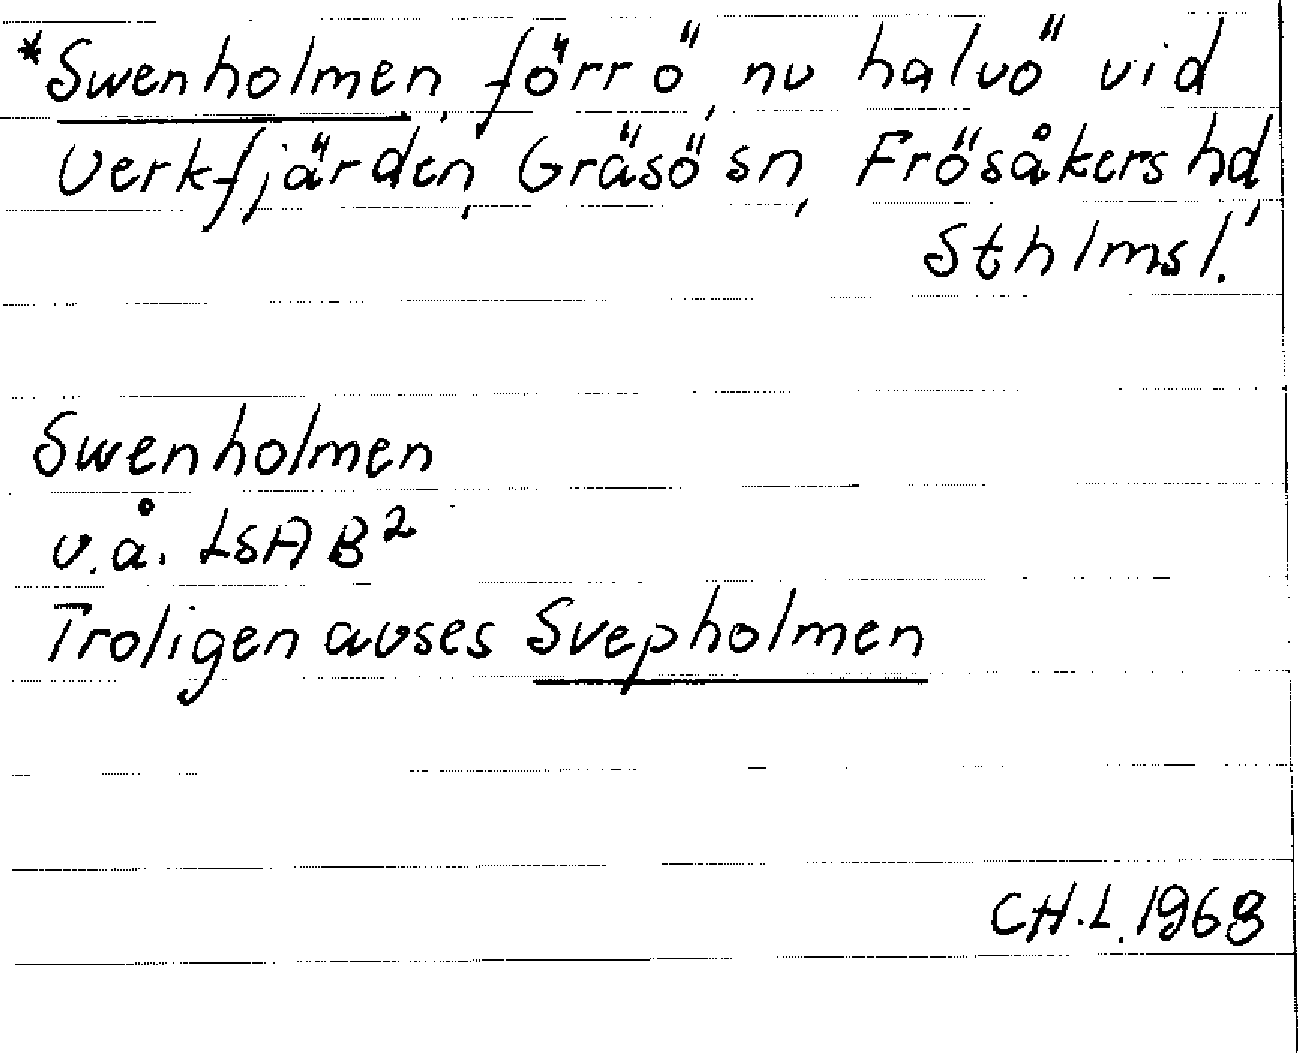 *Swenholmen, förr ö, nu halvö vid
Verkfjärden, Gräsö sn, Frösåkers hd,
Sthlms l.
Swenholmen
v.å. LSA B²
Troligen avses Svepholmen
CH.L. 1968